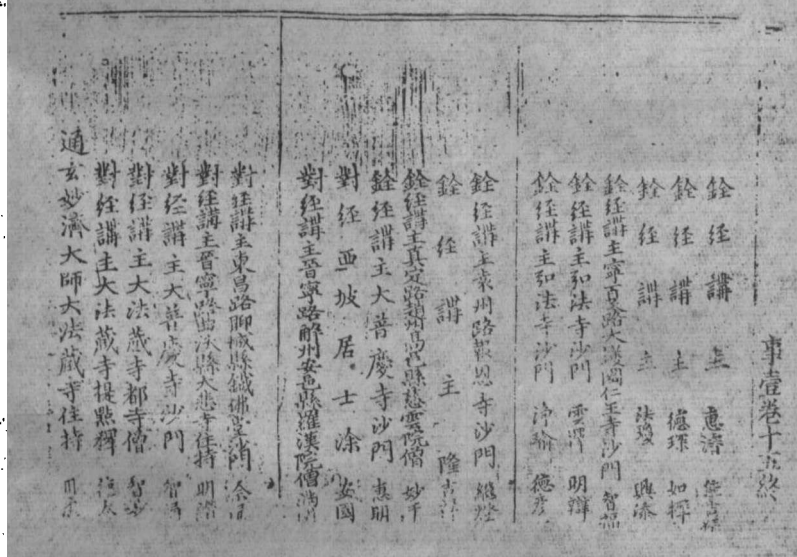 事壹卷十五終
銓經講主 惠濟
銓經講主 德琛 如擇
銓經講主 法瓊 興添
銓經講主寧夏路大漠閣仁王寺沙門 智福
銓經講主弘法寺沙門 雲澗 明辯
銓經講主弘法寺沙門 淨瑜 德彥
銓經講主袁州路報恩寺沙門 繼燈
銓經講主 隆吉祥
銓經講主真定路趙州高邑縣慈雲院僧 妙干
銓經講主大普慶寺沙門 惠明
對經西坡居士涂 安國
對經講主晉寧路解州安邑縣羅漢院僧 滿
對經講主東昌路聊城縣鐵佛寺沙門
對經講主晉寧路曲沃縣大悲寺住持 明
對經講主大普慶寺沙門 智
對經講主大法藏寺都寺僧 智
對經講主大法藏寺提點釋
通玄妙濟大師大法藏寺住持